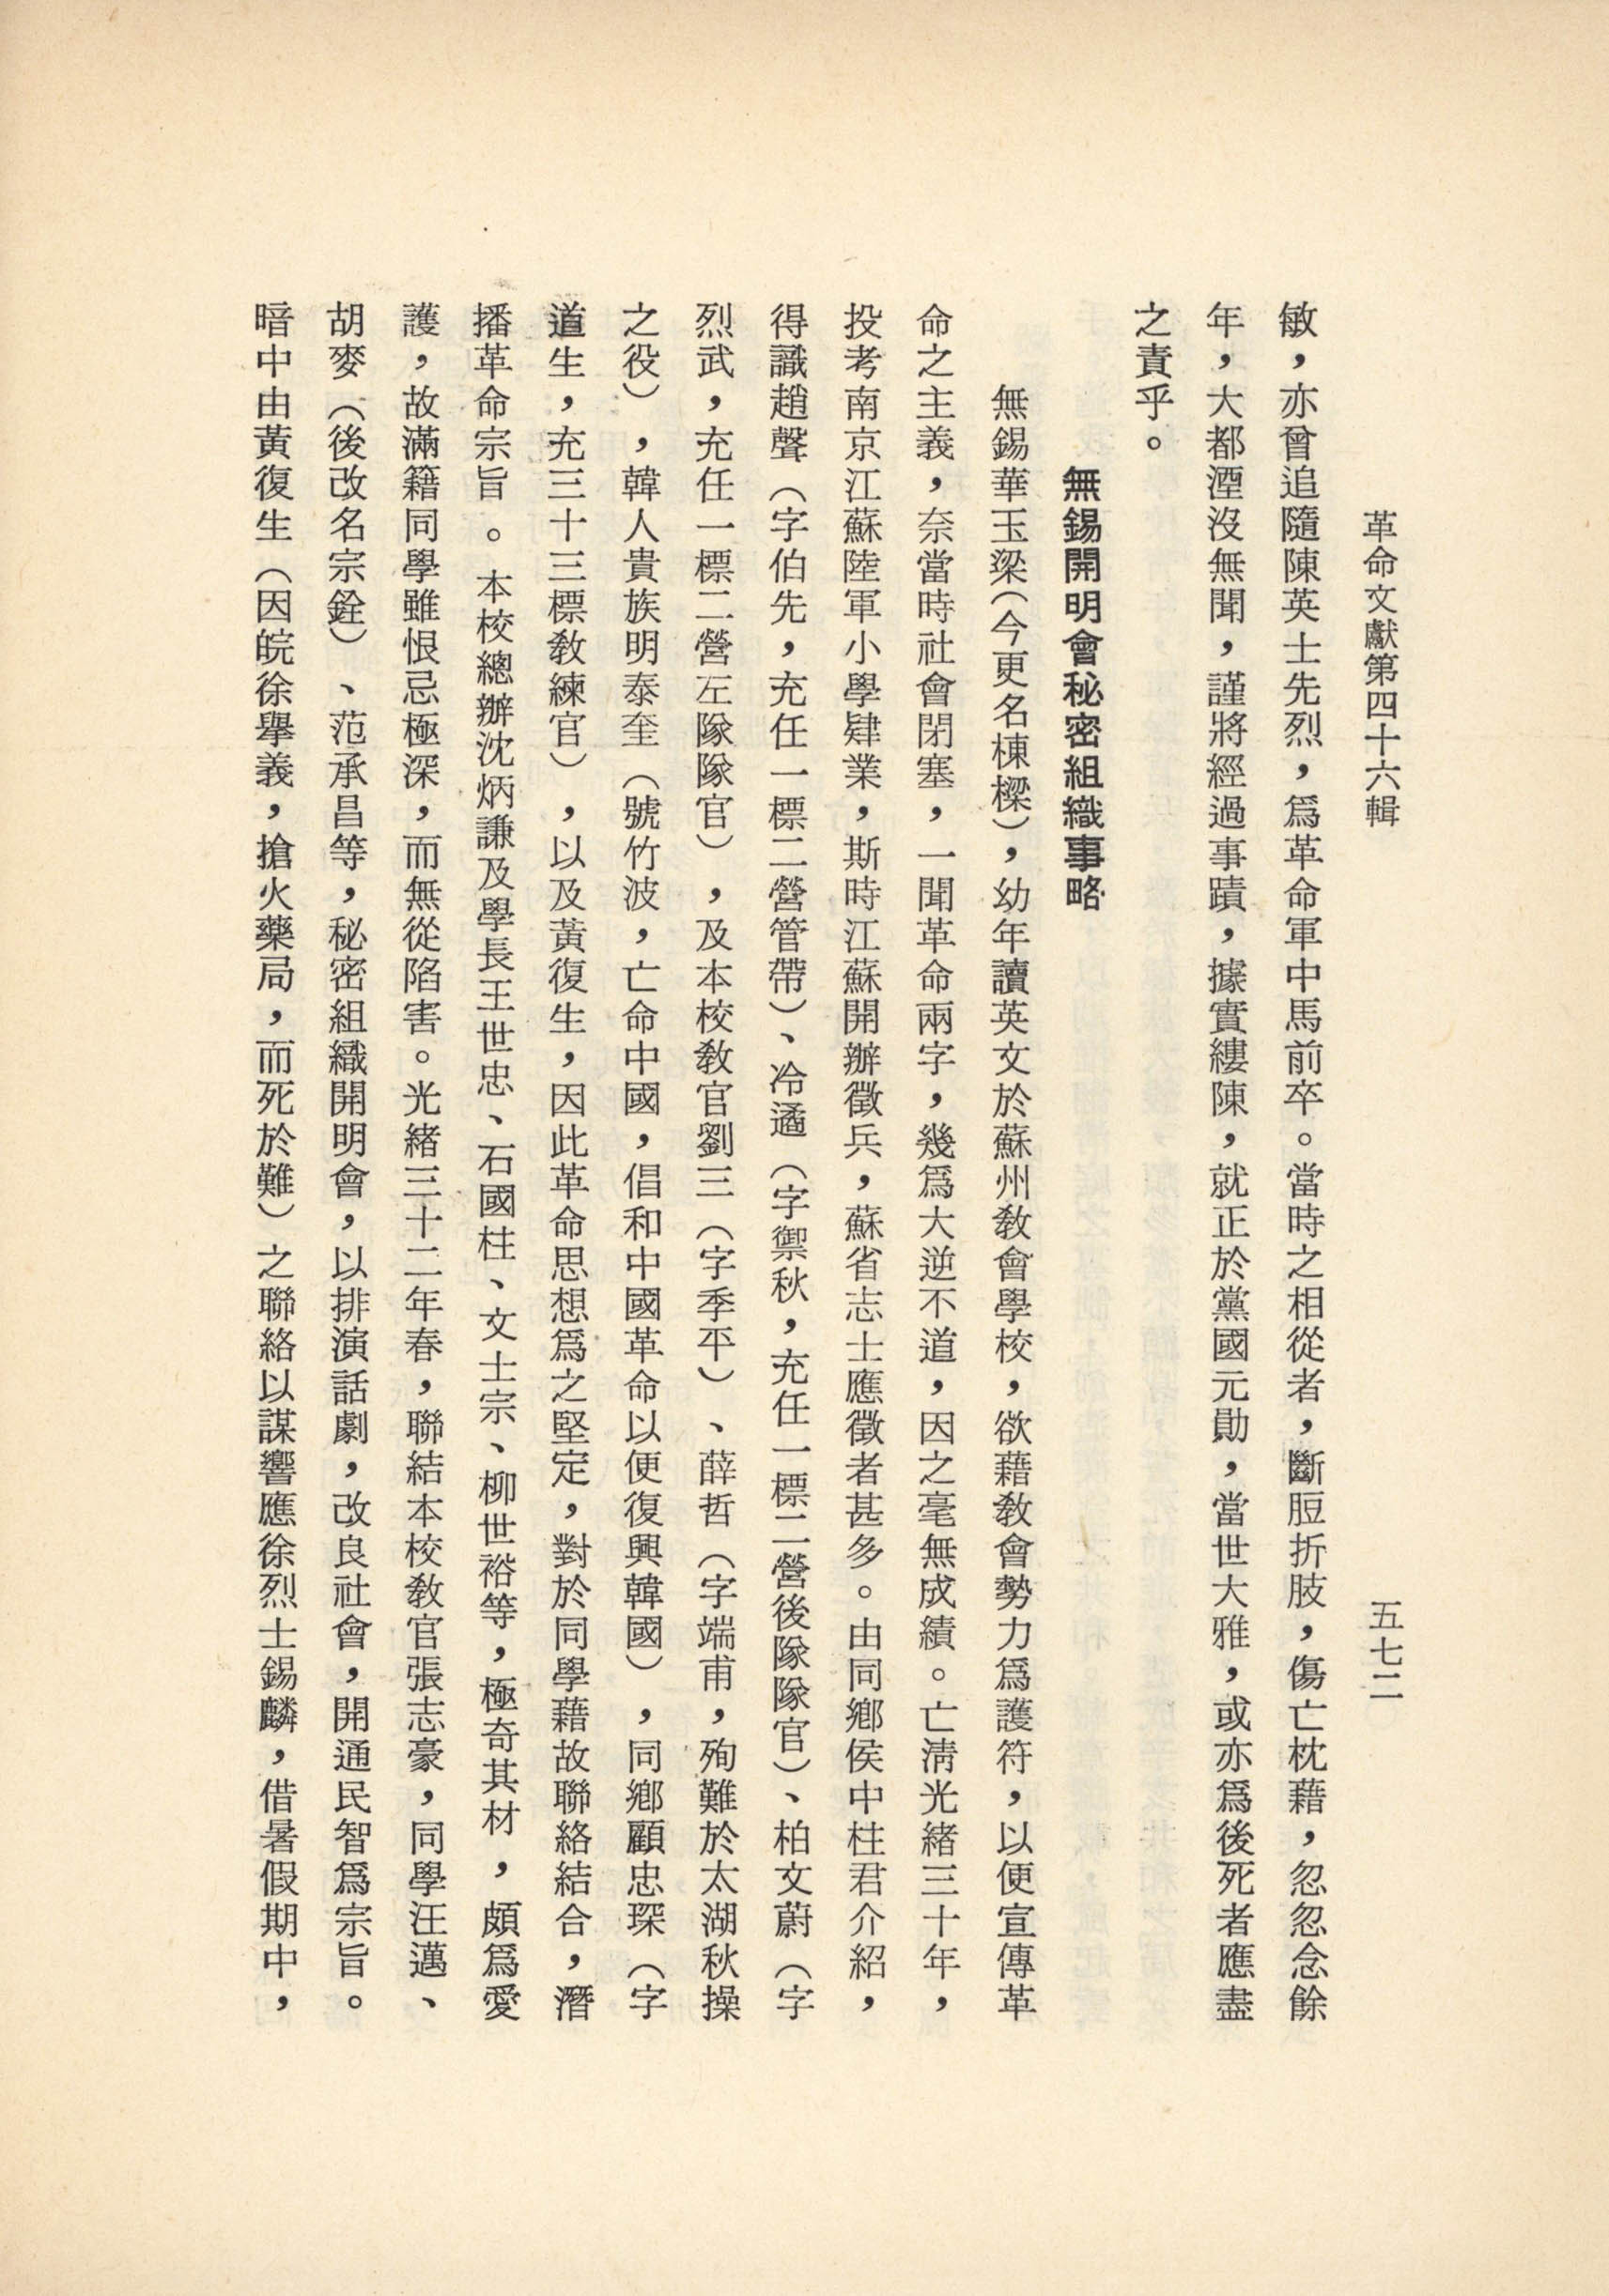 革命文獻第四十六輯
五七二
敏，亦曾追隨陳英士先烈，爲革命軍中馬前卒。當時之相從者，斷脰折肢，傷亡枕藉，忽忽念餘
年，大都湮沒無聞，謹將經過事蹟，據實縷陳，就正於黨國元勛，當世大雅，或亦爲後死者應盡
之責乎。
無錫開明會秘密組織事略
無錫華玉梁（今更名棟樑），幼年讀英文於蘇州教會學校，欲藉教會勢力爲護符，以便宣傳革
命之主義，奈當時社會閉塞，一聞革命兩字，幾爲大逆不道，因之毫無成績。亡淸光緒三十年，
投考南京江蘇陸軍小學肄業，斯時江蘇開辦徵兵，蘇省志士應徵者甚多。由同鄉侯中柱君介紹，
得識趙聲（字伯先，充任一標二營管帶）、冷遹（字禦秋，充任一標二營後隊隊官）、柏文蔚（字
烈武，充任一標二營左隊隊官），及本校教官劉三（字季平）、薛哲（字端甫，殉難於太湖秋操
之役），韓人貴族明泰奎（號竹波，亡命中國，倡和中國革命以便復興韓國），同鄉顧忠琛（字
道生，充三十三標教練官），以及黃復生，因此革命思想爲之堅定，對於同學藉故聯絡結合，潛
播革命宗旨。本校總辦沈炳謙及學長王世忠、石國柱、文士宗、柳世裕等，極奇其材，頗爲愛
護，故滿籍同學雖恨忌極深，而無從陷害。光緒三十二年春，聯結本校教官張志豪，同學汪邁、
胡麥（後改名宗銓）、范承昌等，秘密組織開明會，以排演話劇，改良社會，開通民智爲宗旨。
暗中由黃復生（因皖徐擧義，搶火藥局，而死於難）之聯絡以謀響應徐烈士錫麟，借暑假期中，